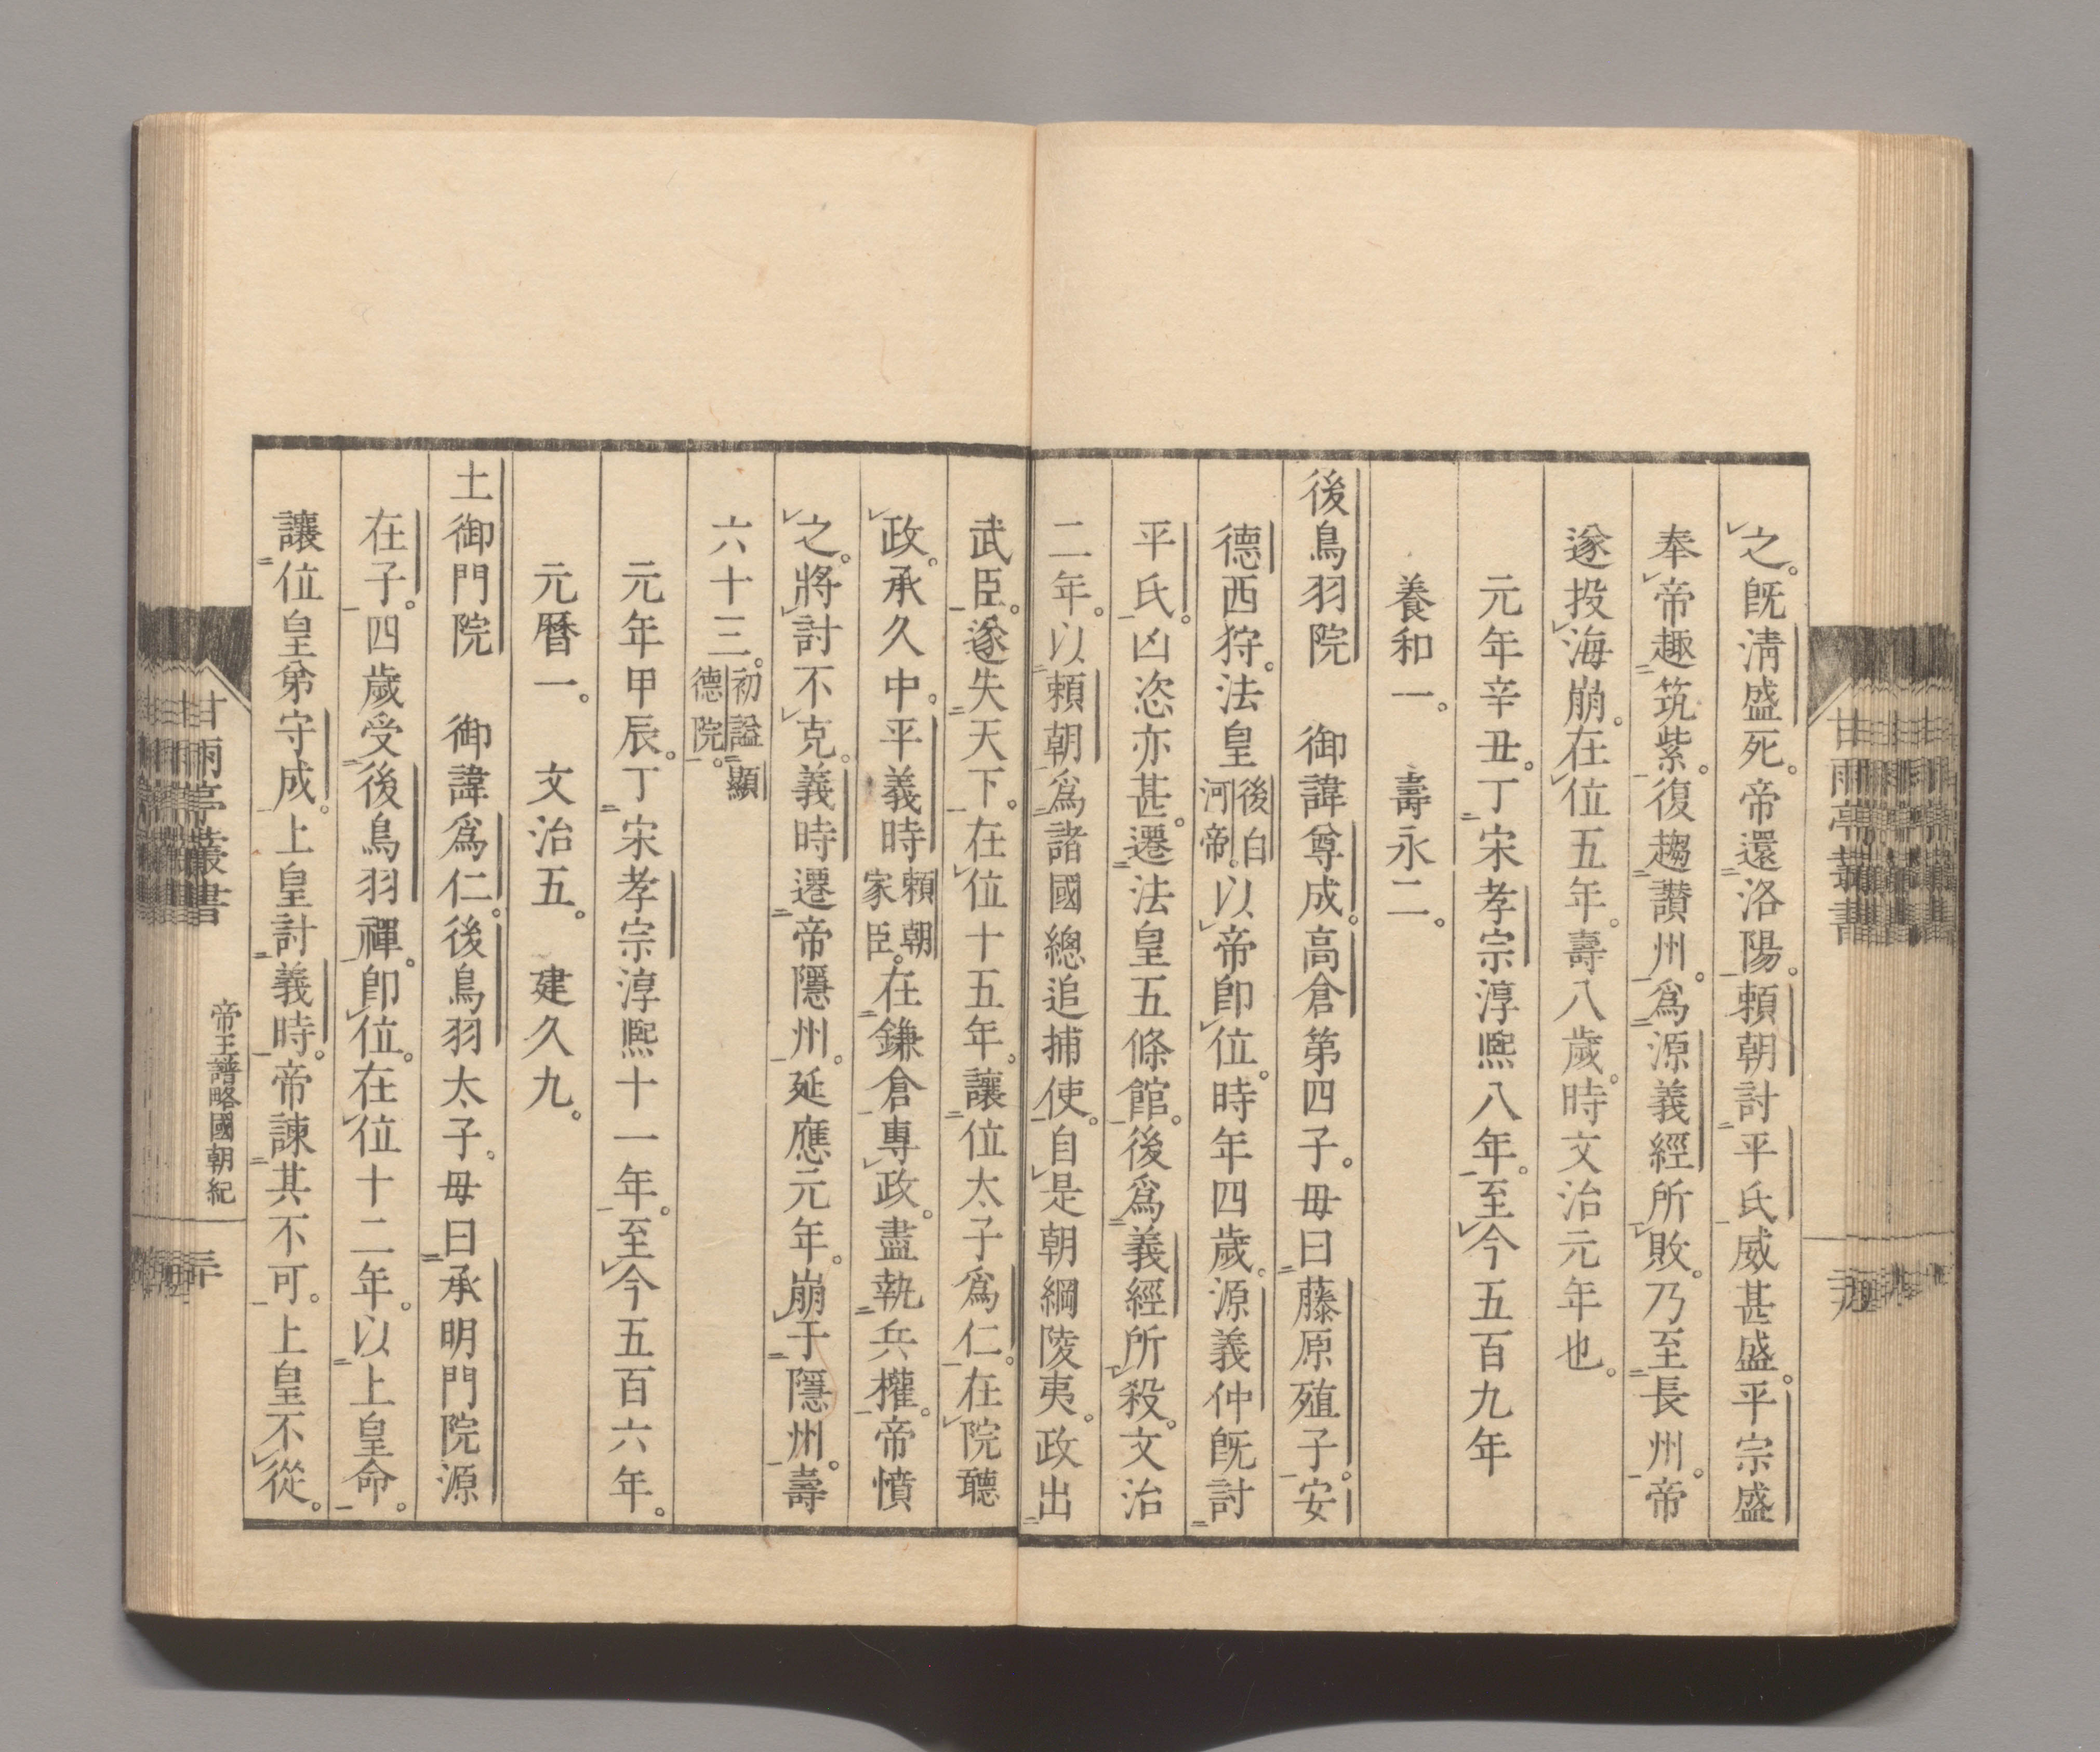 之。既淸盛死。帝還洛陽。賴朝討平氏威甚盛。平宗盛
奉帝趣筑紫。復趨讃州。爲源義經所敗。乃至長州。帝
遂投海崩。在位五年。壽八歲。時文治元年也。
元年辛丑。丁宋孝宗淳熙八年。至今五百九年
養和一。　壽永二。
後鳥羽院　御諱尊成。高倉第四子。母曰藤原殖子。安
德西狩。法皇後白河帝。以帝卽位。時年四歲。源義仲旣討
平氏。凶恣亦甚。遷法皇五條館。後爲義經所殺。文治
二年。以賴朝爲諸國總追捕使。自是朝綱陵夷。政出
武臣。遂失天下。在位十五年。讓位太子爲仁。在院聽
政。承久中。平義時賴朝家臣。在鎌倉專政。盡執兵權。帝憤
之。將討不克。義時遷帝隱州。延應元年。崩于隱州。壽
六十三。初謚顯德院。
元年甲辰。丁宋孝宗淳熙十一年。至今五百六年。
元曆一。　文治五。　建久九。
土御門院　御諱爲仁。後鳥羽太子。母曰承明門院源
在子。四歲受後鳥羽禪。卽位。在位十二年。以上皇命。
讓位皇弟守成。上皇討義時。帝諫其不可。上皇不從。
甘雨亭叢書
帝王譜略國朝紀
甘雨亭叢書